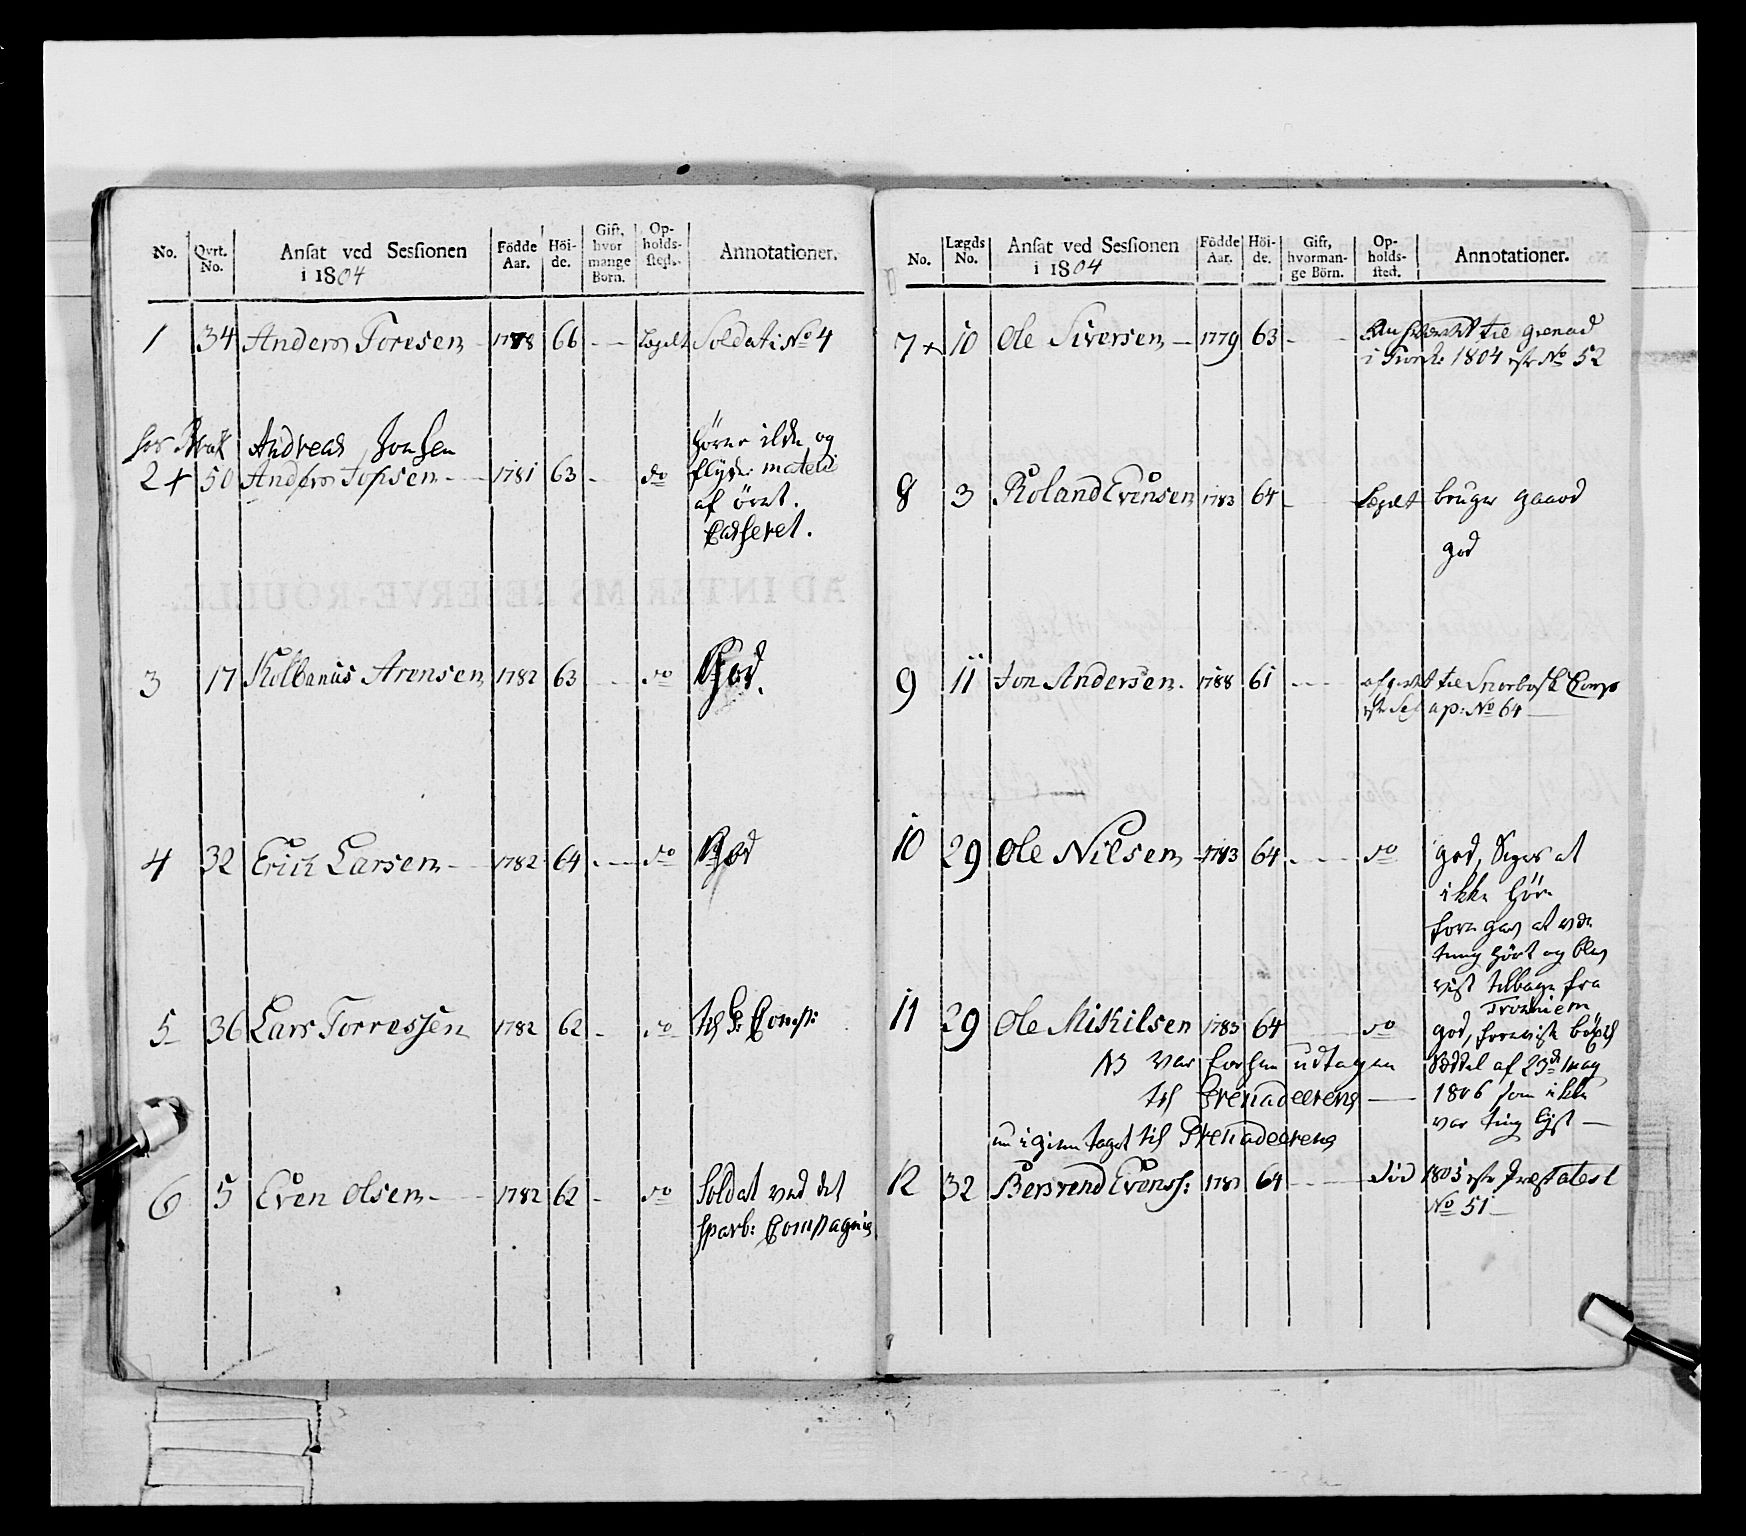 No. Qvrt. No. Ansat ved Sessionen i 1804 Födde Aar. Höi-de. Gift, hvor mange Born. Op-holds-sted. Annotationer.
1 34 Anders Toresen 1778 66 - Lægdt Soldat i No 4
Andreas Jonsen
2+ 50 Anders 1781 63 - do
hörer ilde og
flyder materie
af öret.
Casseret.
3 17 Kolbanus Arensen 1782 63 - do God.
4 32 Erich Larsen 1782 64 - do God
5 36 Lars Torressen 1782 62 - do
6 5 Even Olsen 1782 62 - do Soldat ved det
sparb: Compagnie
No. Lægds No. Ansat ved Sessionen i 1804 Födde Aar. Höi-de. Gift, hvorman-ge Börn. Op-holds-sted. Annotationer.
7+ 10 Ole Siversen 1779 63 - til Grenad
i 1804 No 52
8 3 Roland Evensen 1783 64 - Lægdt bruger gaard
god
9 11 Jon Andersen 1788 61 - til Corps
No 64
10 29 Ole Nilsen 1783 64 - do god, siger at
ikke höre
at være
tung hört og blev
vist tilbage fra
Troniem
11 29 Ole Mikilsen 1783 64 do god,
NB var forhen udtagen
Seddel af 23de May
til Grenadeerene
1806 som ikke
var ting lyst
nu igien taget til Grenadeerene
12 32 Berrend Evenss: 64 - död 1805 Præstatest
No 51